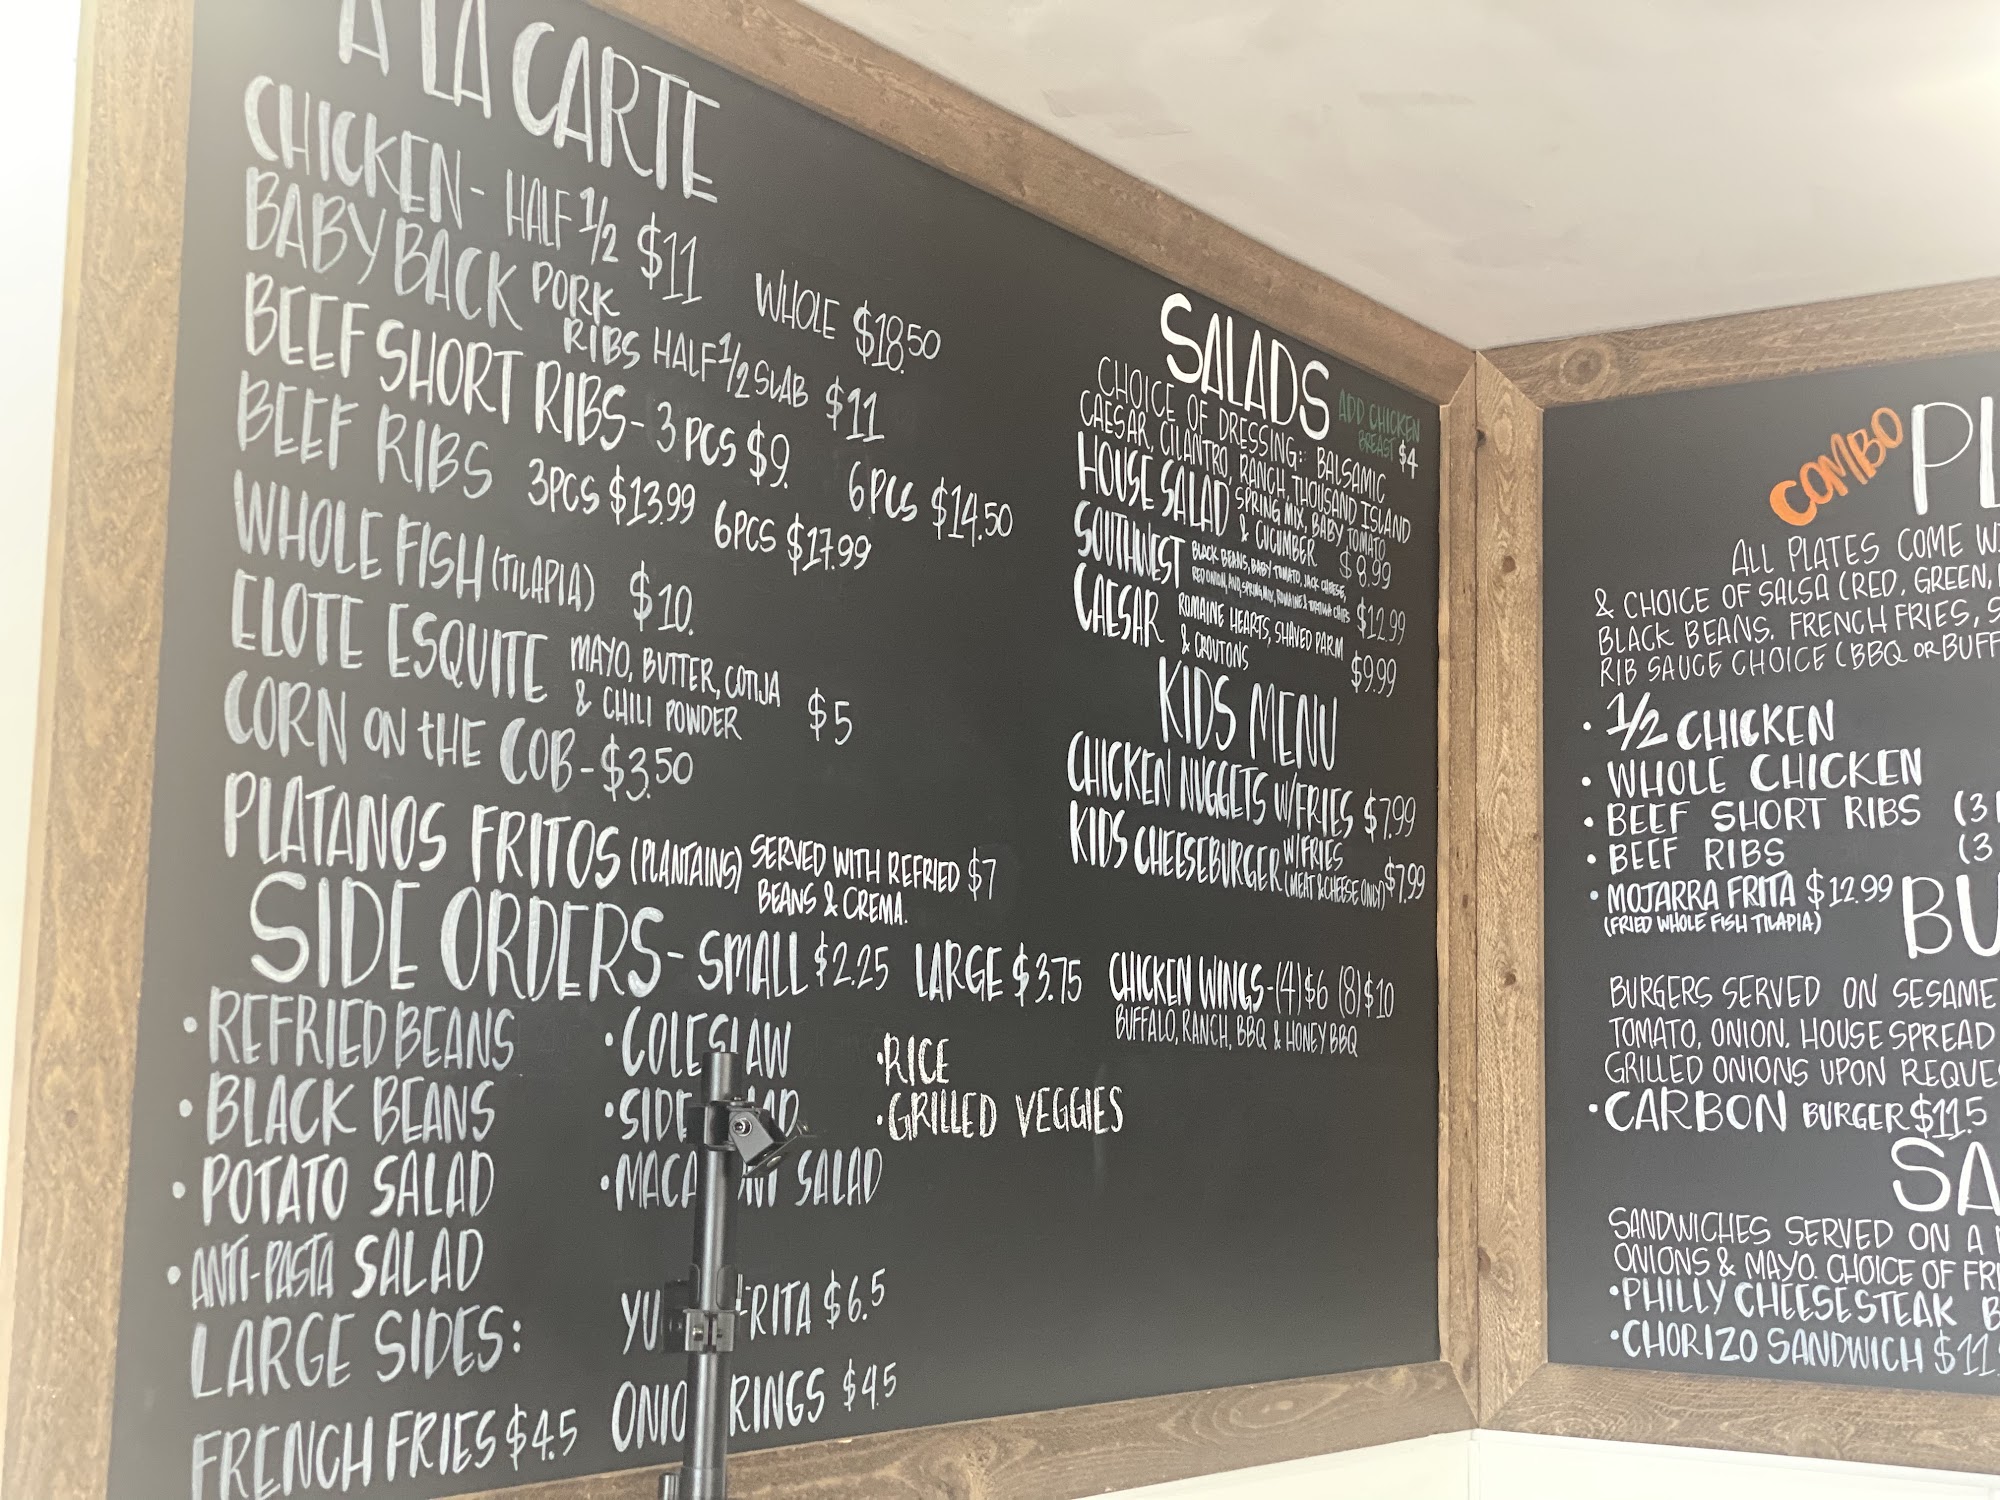 A LA CARTE
CHICKEN - HALF 1/2 $11 WHOLE $18.50
BABY BACK PORK RIBS HALF 1/2 SLAB $11
BEEF SHORT RIBS - 3 PCS $9. 6 PCS $14.50
BEEF RIBS 3PCS $13.99 6PCS $17.99
WHOLE FISH (TILAPIA) $10.
ELOTE ESQUITE MAYO, BUTTER, COTIJA
& CHILI POWDER $5
CORN ON THE COB - $3.50
PLATANOS FRITOS (PLANTAINS) SERVED WITH REFRIED $7
BEANS & CREMA.
SIDE ORDERS - SMALL $2.25 LARGE $3.75
• REFRIED BEANS
• BLACK BEANS
• POTATO SALAD
• ANTI-PASTA SALAD
• COLESLAW
• SIDE
• MACA SALAD
• RICE
• GRILLED VEGGIES
LARGE SIDES:
FRENCH FRIES $4.5
YU FRITA $6.5
ONIO RINGS $4.5
SALADS
ADD CHICKEN
BREAST $4
CHOICE OF DRESSING: BALSAMIC
CAESAR, CILANTRO, RANCH, THOUSAND ISLAND
HOUSE SALAD SPRING MIX, BABY TOMATO
& CUCUMBER $8.99
SOUTHWEST BLACK BEANS, BABY TOMATO, JACK CHEESE,
RED ONION, AVO, SPRING MIX, ROMAINE & TORTILLA CHIPS $12.99
CAESAR ROMAINE HEARTS, SHAVED PARM
& CROUTONS $9.99
KIDS MENU
CHICKEN NUGGETS W/FRIES $7.99
KIDS CHEESEBURGER W/FRIES
(MEAT & CHEESE ONLY) $7.99
CHICKEN WINGS - (4) $6 (8) $10
BUFFALO, RANCH, BBQ & HONEY BBQ
COMBO PL
ALL PLATES COME WI
& CHOICE OF SALSA (RED, GREEN,
BLACK BEANS. FRENCH FRIES, S
RIB SAUCE CHOICE (BBQ OR BUFF
• 1/2 CHICKEN
• WHOLE CHICKEN
• BEEF SHORT RIBS (3
• BEEF RIBS (3
• MOJARRA FRITA $12.99
(FRIED WHOLE FISH TILAPIA)
BU
BURGERS SERVED ON SESAME
TOMATO, ONION. HOUSE SPREAD
GRILLED ONIONS UPON REQUE
• CARBON BURGER $11.5
SA
SANDWICHES SERVED ON A
ONIONS & MAYO. CHOICE OF FRI
• PHILLY CHEESESTEAK B
• CHORIZO SANDWICH $11.